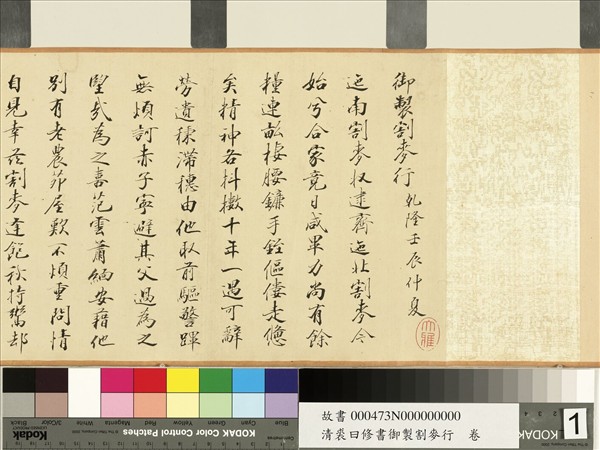 御製割麥行 乾隆壬辰仲夏
迤南割麥收逮齊迤北割麥今
始兮合家竟日咸畢力尚有餘
糧連畝棲腰鐮手銍傴僂走憊
矣精神各抖擻十年一遇可辭
勞遺秉滯穗由他取前驅警蹕
無煩訶赤子寧避其父過為之
為之喜范雲蕭緬安藉他
別有老農茆屋歎不煩重問情
自見幸茲割麥逢飽却
大雅
Kodak
KODAK Color Control Patches
Blue Cyan Green Yellow Red Magenta White 3/Color Black
故書 000473N000000000
清裘曰修書御製割麥行 卷
1